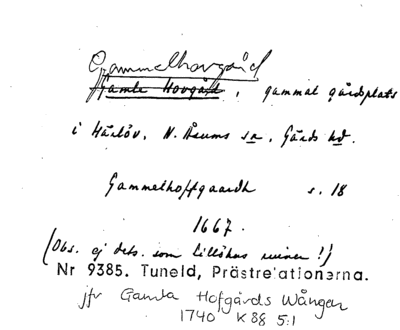 Gammelhovgård
Gamle Hovgård, gammal gårdsplats
i Härlöv, N. Åsums sn, Gärds hd.
Gammelhoffgaardh s. 18
1667.
(Obs. ej dets. som Lillöhus ruiner!)
Nr 9385. Tuneld, Prästrelationerna.
jfr Gamla Hofgårds Wången
1740 K 88 5:1